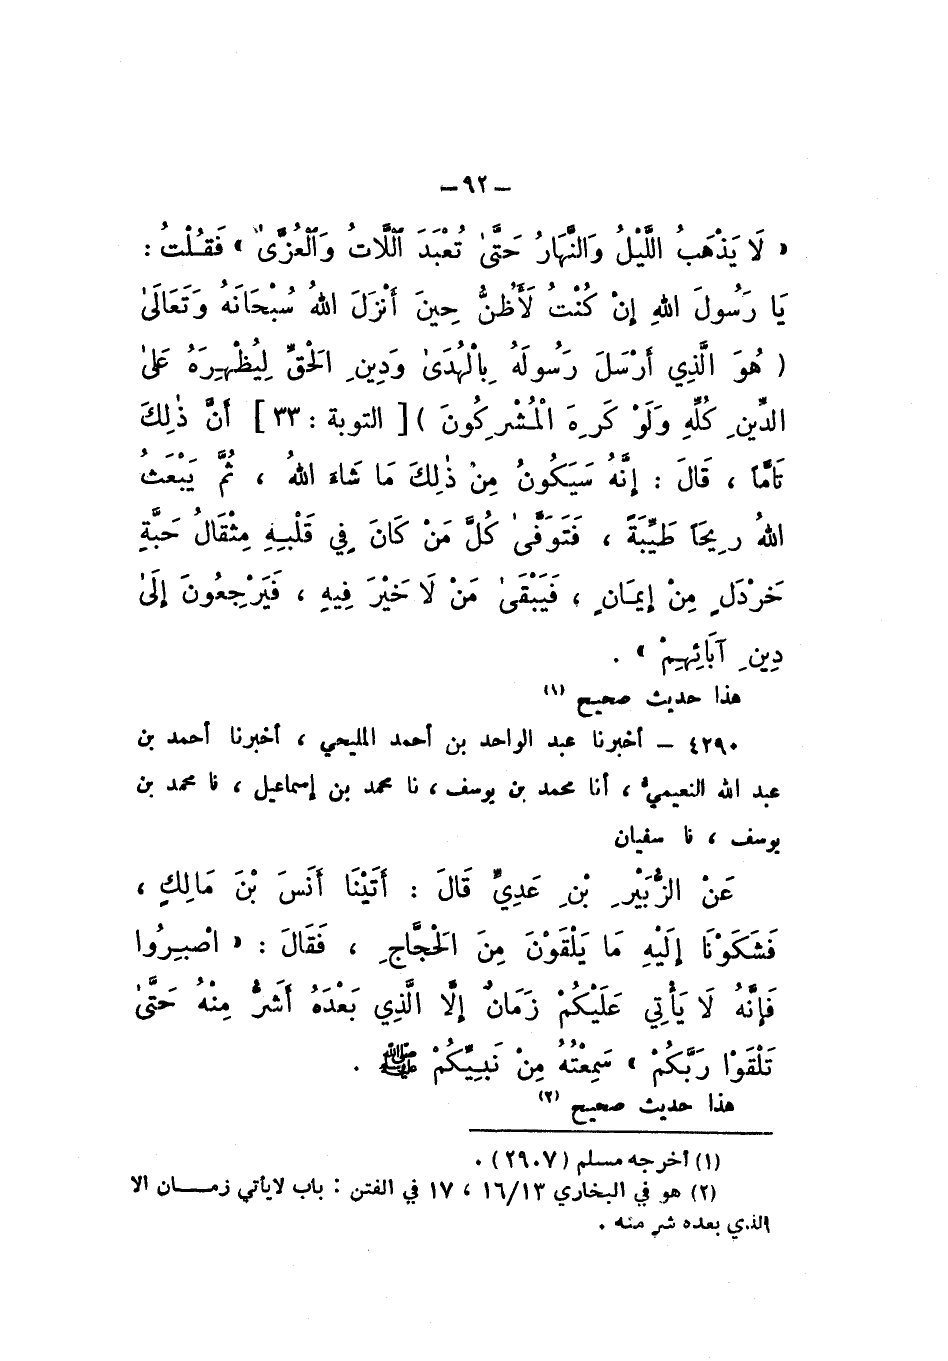 – ٩٢ –
« لَا يَذْهَبُ اللَّيْلُ وَالنَّهَارُ حَتَّىٰ تُعْبَدَ ٱللَّاتُ وَٱلْعُزَّىٰ » فَقُلْتُ :
يَا رَسُولَ اللهِ إِنْ كُنْتُ لَأَظُنُّ حِينَ أَنْزَلَ اللهُ سُبْحَانَهُ وَتَعَالَىٰ
( هُوَ الَّذِي أَرْسَلَ رَسُولَهُ بِالْهُدَىٰ وَدِينِ الْحَقِّ لِيُظْهِرَهُ عَلَىٰ
الدِّينِ كُلِّهِ وَلَوْ كَرِهَ الْمُشْرِكُونَ ) [ التوبة : ٣٣ ] أَنَّ ذٰلِكَ
تَامًّا ، قَالَ : إِنَّهُ سَيَكُونُ مِنْ ذٰلِكَ مَا شَاءَ اللهُ ، ثُمَّ يَبْعَثُ
اللهُ رِيحًا طَيِّبَةً ، فَتَوَفَّىٰ كُلَّ مَنْ كَانَ فِي قَلْبِهِ مِثْقَالُ حَبَّةِ
خَرْدَلٍ مِنْ إِيمَانٍ ، فَيَبْقَىٰ مَنْ لَا خَيْرَ فِيهِ ، فَيَرْجِعُونَ إِلَىٰ
دِينِ آبَائِهِمْ » .
هذا حديث صحيح (١)
٤٢٩٠ – أخبرنا عبد الواحد بن أحمد المليحي ، أخبرنا أحمد بن
عبد الله النعيميُّ ، أنا محمد بن يوسف ، نا محمد بن إسماعيل ، نا محمد بن
يوسف ، نا سفيان
عَنْ الزُّبَيْرِ بْنِ عَدِيٍّ قَالَ : أَتَيْنَا أَنَسَ بْنَ مَالِكٍ ،
فَشَكَوْنَا إِلَيْهِ مَا يَلْقَوْنَ مِنَ الْحَجَّاجِ ، فَقَالَ : « اصْبِرُوا
فَإِنَّهُ لَا يَأْتِي عَلَيْكُمْ زَمَانٌ إِلَّا الَّذِي بَعْدَهُ أَشَرُّ مِنْهُ حَتَّىٰ
تَلْقَوْا رَبَّكُمْ » سَمِعْتُهُ مِنْ نَبِيِّكُمْ ﷺ .
هذا حديث صحيح (٢)
(١) أخرجه مسلم (٢٩٠٧) .
(٢) هو في البخاري ١٦/١٣ ، ١٧ في الفتن : باب لايأتي زمـــان الا
الذي بعده شر منه .